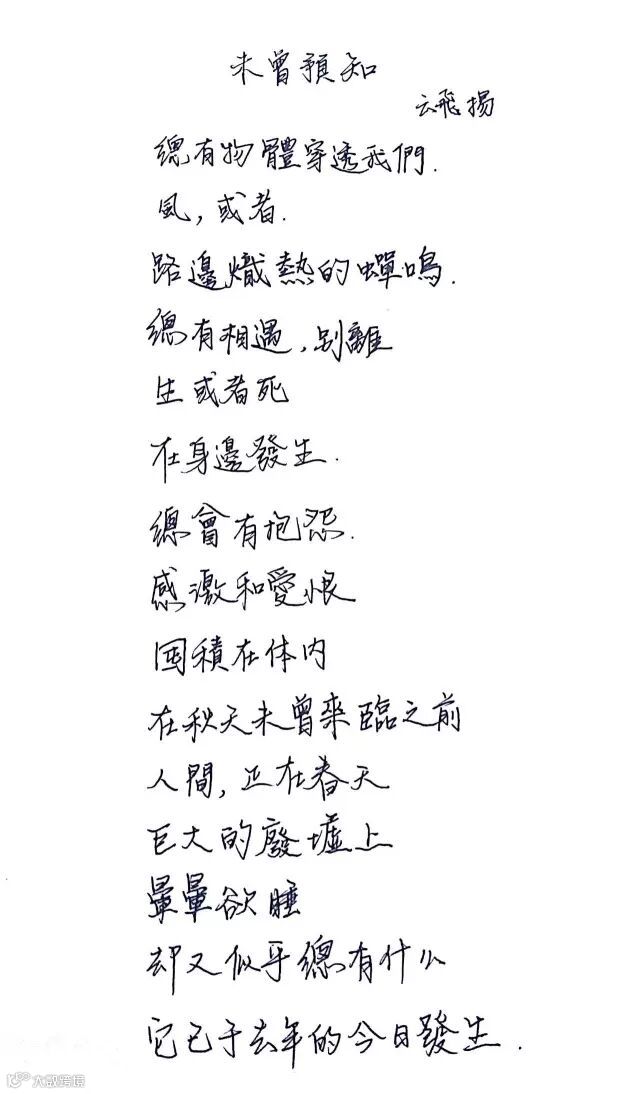 未曾預知
云飛揚
總有物體穿透我們.
風,或者.
路邊熾熱的蟬鳴.
總有相遇,别離
生或者死
在身邊發生.
總會有抱怨.
感激和愛恨
囤積在体内
在秋天未曾來臨之前
人間,正在春天
巨大的廢墟上
暈暈欲睡
却又似乎總有什么
它已于去年的今日發生.
大数跨境